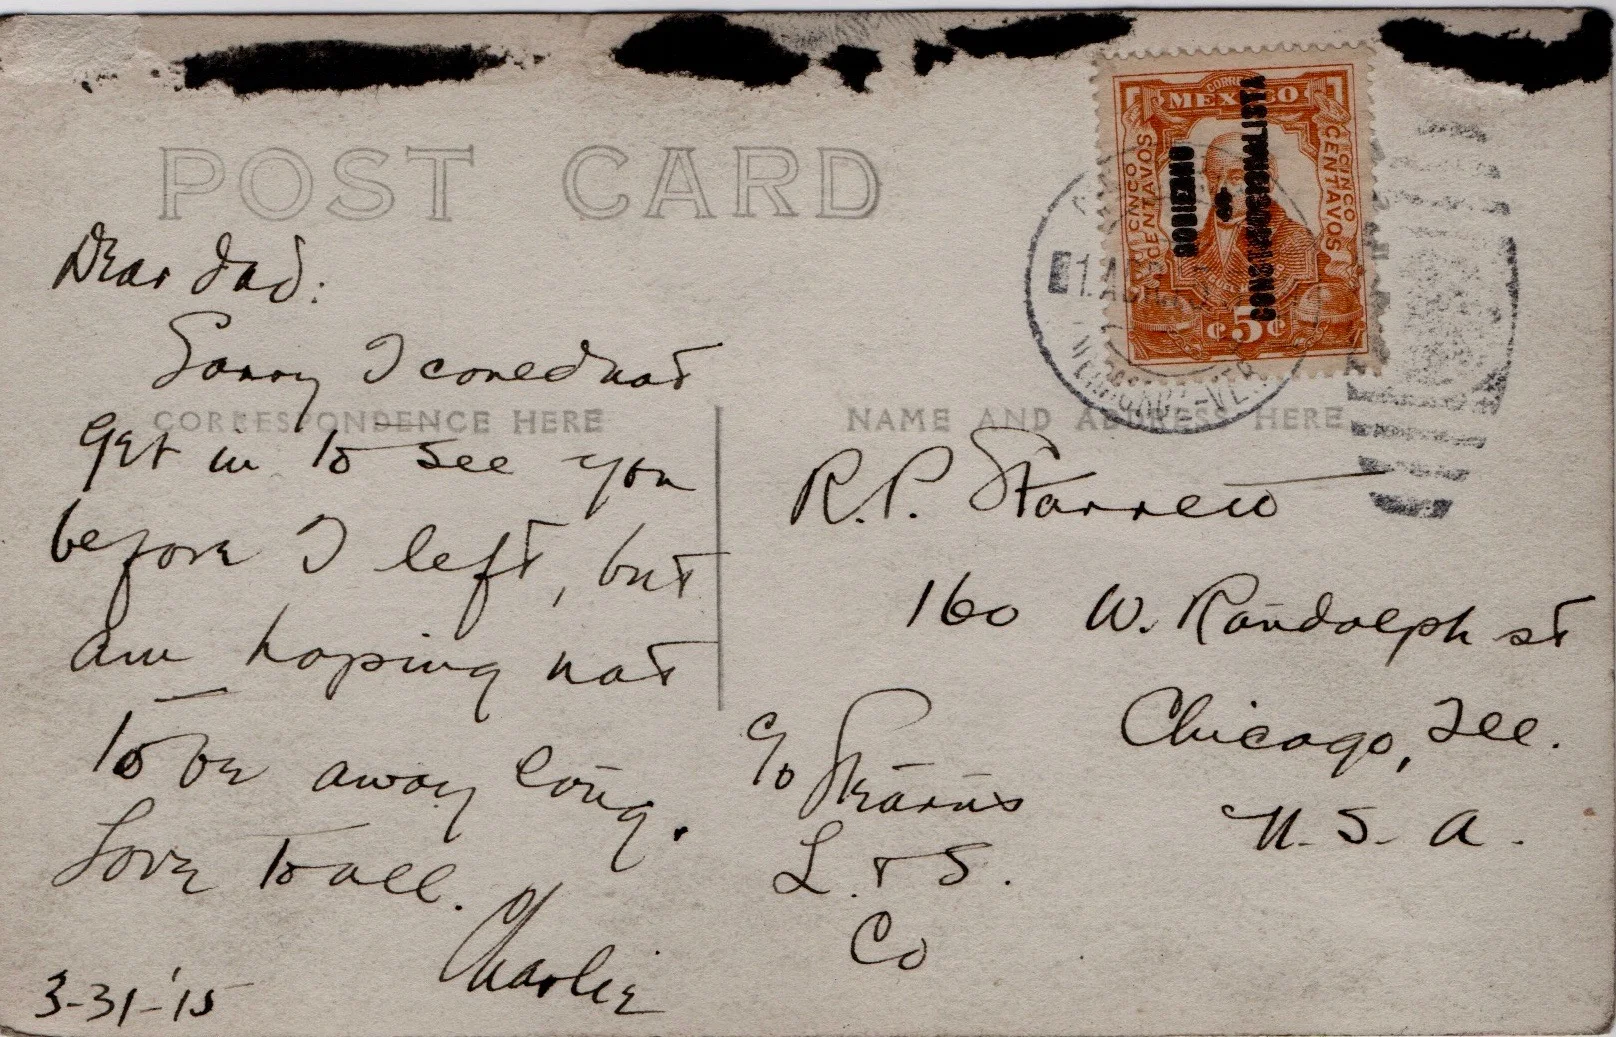 POST CARD
CORREOS
MEXICO
CINCO CENTAVOS
CINCO CENTAVOS
GOBIERNO
CONSTITUCIONALISTA
¢5¢
1 ABR
Dear Dad:
Sorry I could not
CORRESPONDENCE HERE
get in to see you
before I left, but
am hoping not
to be away long.
Love to all.
Charlie
3-31-'15
NAME AND ADDRESS HERE
R.P. Starrett
160 W. Randolph st
Chicago, Ill.
U.S.A.
c/o Stearns
L. & S.
Co